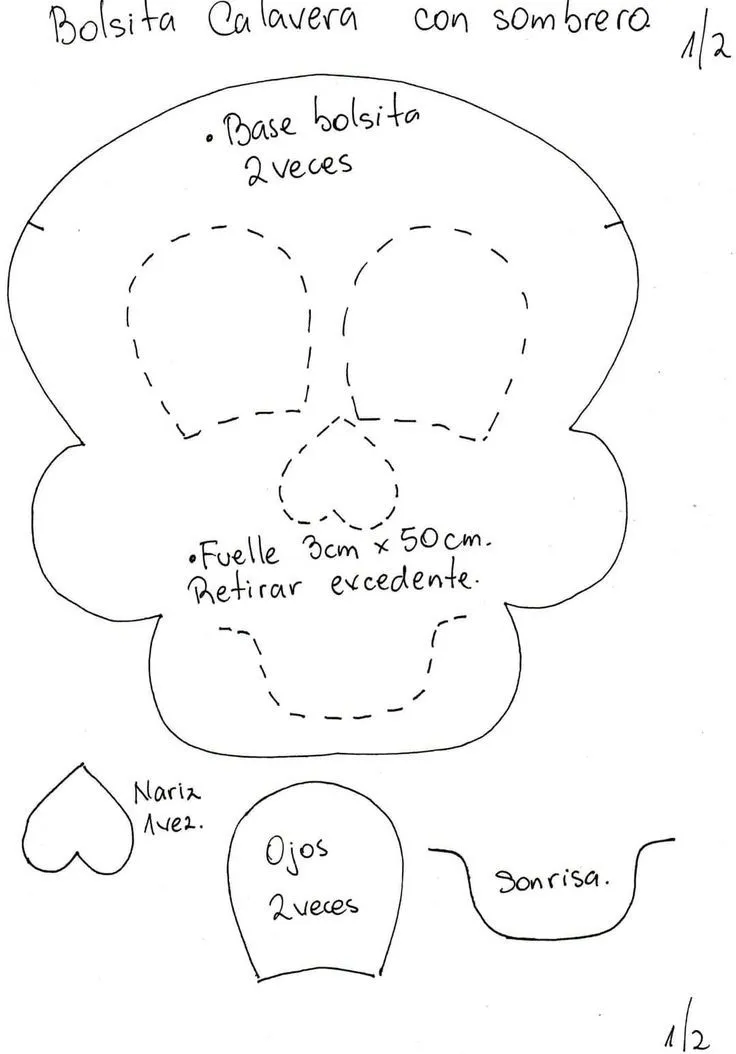 Bolsita Calavera con sombrero
1/2
• Base bolsita
2 veces
• Fuelle 3cm x 50cm.
Retirar excedente.
Nariz
1 vez.
Ojos
2 veces
Sonrisa.
1/2